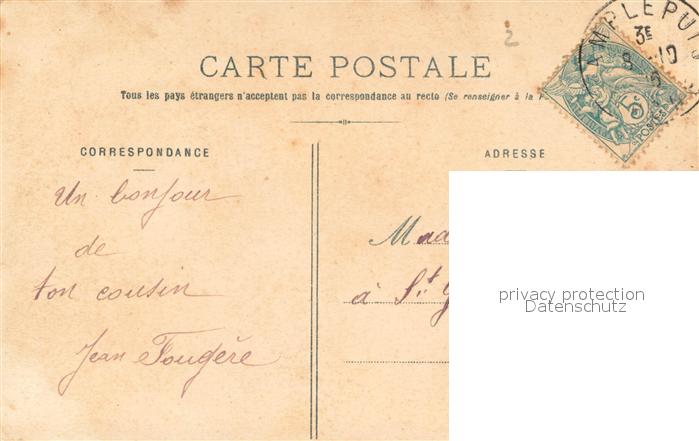 2
CARTE POSTALE
Tous les pays étrangers n'acceptent pas la correspondance au recto (Se renseigner à la
AMPLEPUIS
3E
8 -10
5c
POSTES
CORRESPONDANCE
ADRESSE
Un bonjour
de
ton cousin
Jean Fougère
Mad
à St. G
privacy protection
Datenschutz